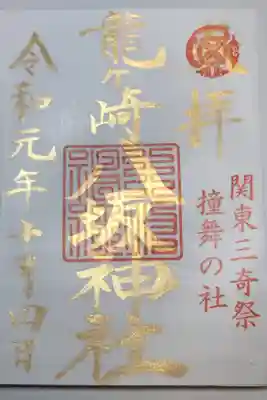 拝
関東三奇祭
撞舞の社
龍ヶ崎八坂神社
令和元年十四日